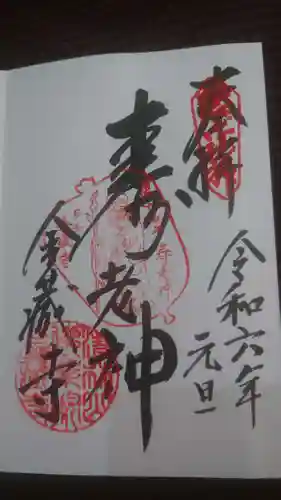 奉拝
令和六年
元旦
寿老神
金蔵寺